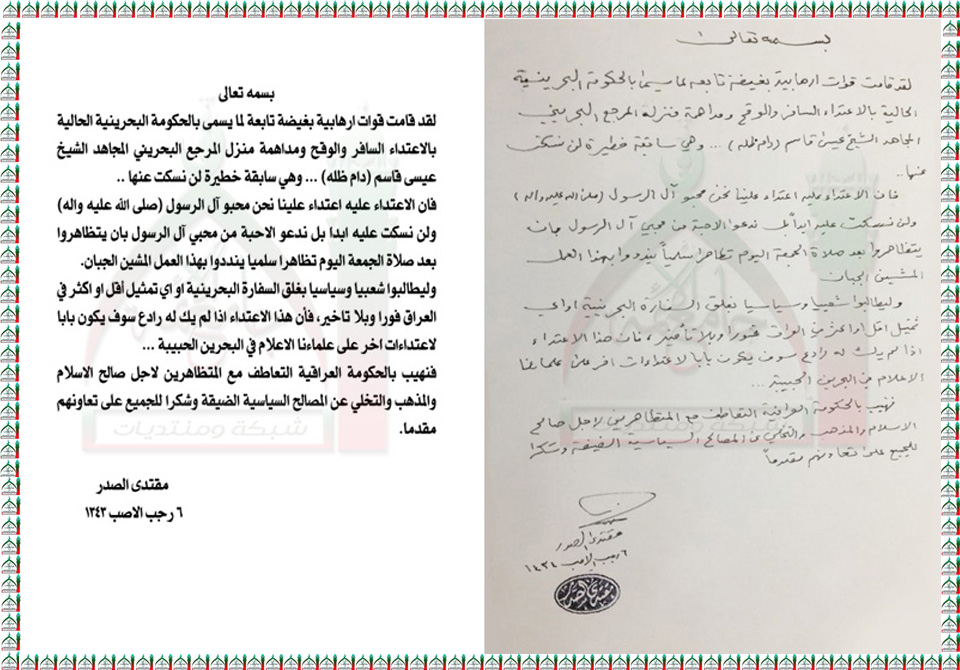 بسمه تعالى
لقد قامت قوات ارهابية بغيضة تابعة لما يسمى بالحكومة البحرينية الحالية
بالاعتداء السافر والوقح ومداهمة منزل المرجع البحريني المجاهد الشيخ
عيسى قاسم (دام ظله) ... وهي سابقة خطيرة لن نسكت عنها ..
فان الاعتداء عليه اعتداء علينا نحن محبو آل الرسول (صلى الله عليه واله)
ولن نسكت عليه ابدا بل ندعو الاحبة من محبي آل الرسول بان يتظاهروا
بعد صلاة الجمعة اليوم تظاهرا سلميا ينددوا بهذا العمل المشين الجبان.
وليطالبوا شعبيا وسياسيا بغلق السفارة البحرينية او اي تمثيل أقل او اكثر في
العراق فورا وبلا تاخير، فأن هذا الاعتداء اذا لم يك له رادع سوف يكون بابا
لاعتداءات اخر على علماءنا الاعلام في البحرين الحبيبة ...
فنهيب بالحكومة العراقية التعاطف مع المتظاهرين لاجل صالح الاسلام
والمذهب والتخلي عن المصالح السياسية الضيقة وشكرا للجميع على تعاونهم
مقدما.
مقتدى الصدر
٦ رجب الاصب ١٣٤٣
شبكة ومنتديات
بسمه تعالى
لقد قامت قوات ارهابية بغيضة تابعه لما يسمى بالحكومة البحرينية
الحالية بالاعتداء السافر والوقح ومداهمة منزلة المرجع البحريني
المجاهد الشيخ عيسى قاسم (دام ظله) ... وهي سابقة خطيرة لن نسكت
عنها ..
فان الاعتداء عليه اعتداء علينا نحن محبو آل الرسول (صلى الله عليه واله)
ولن نسكت عليه ابداً بل ندعوا الاحبة من محبي آل الرسول بان
يتظاهروا بعد صلاة الجمعة اليوم تظاهراً سلمياً ينددوا بهذا العمل
المشين الجبان
وليطالبوا شعبيا وسياسيا بغلق السفارة البحرينية او اي
تمثيل اقل او اكثر في العراق فوراً وبلا تأخير، فان هذا الاعتداء
اذا لم يك له رادع سوف يكون بابا لاعتداءات اخر على علمائنا
الاعلام في البحرين الحبيبة ...
فنهيب بالحكومة العراقية التعاطف مع المتظاهرين لاجل صالح
الاسلام والمذهب والتخلي عن المصالح السياسية الضيقة وشكرا
للجميع على تعاونهم مقدماً
مقتدى الصدر
٦ رجب الاصب ١٤٣٤
مقتدى الصدر
شبكة ومنتديات